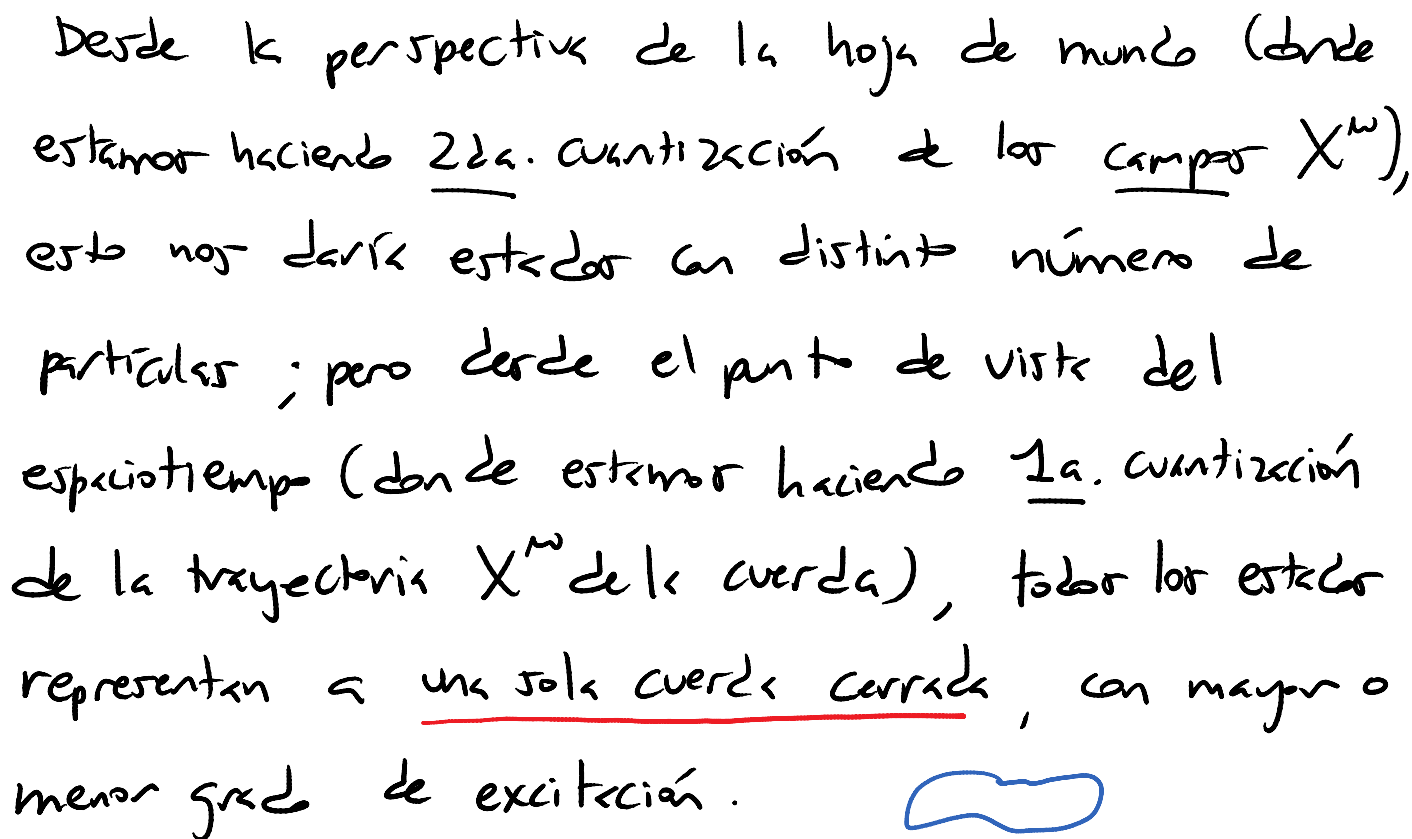 Desde la perspectiva de la hoja de mundo (donde
estamos haciendo 2da. cuantización de los campos X^μ),
esto nos daría estados con distinto número de
partículas ; pero desde el punto de vista del
espaciotiempo (donde estamos haciendo 1a. cuantización
de la trayectoria X^μ de la cuerda), todos los estados
representan a una sola cuerda cerrada, con mayor o
menor grado de excitación.